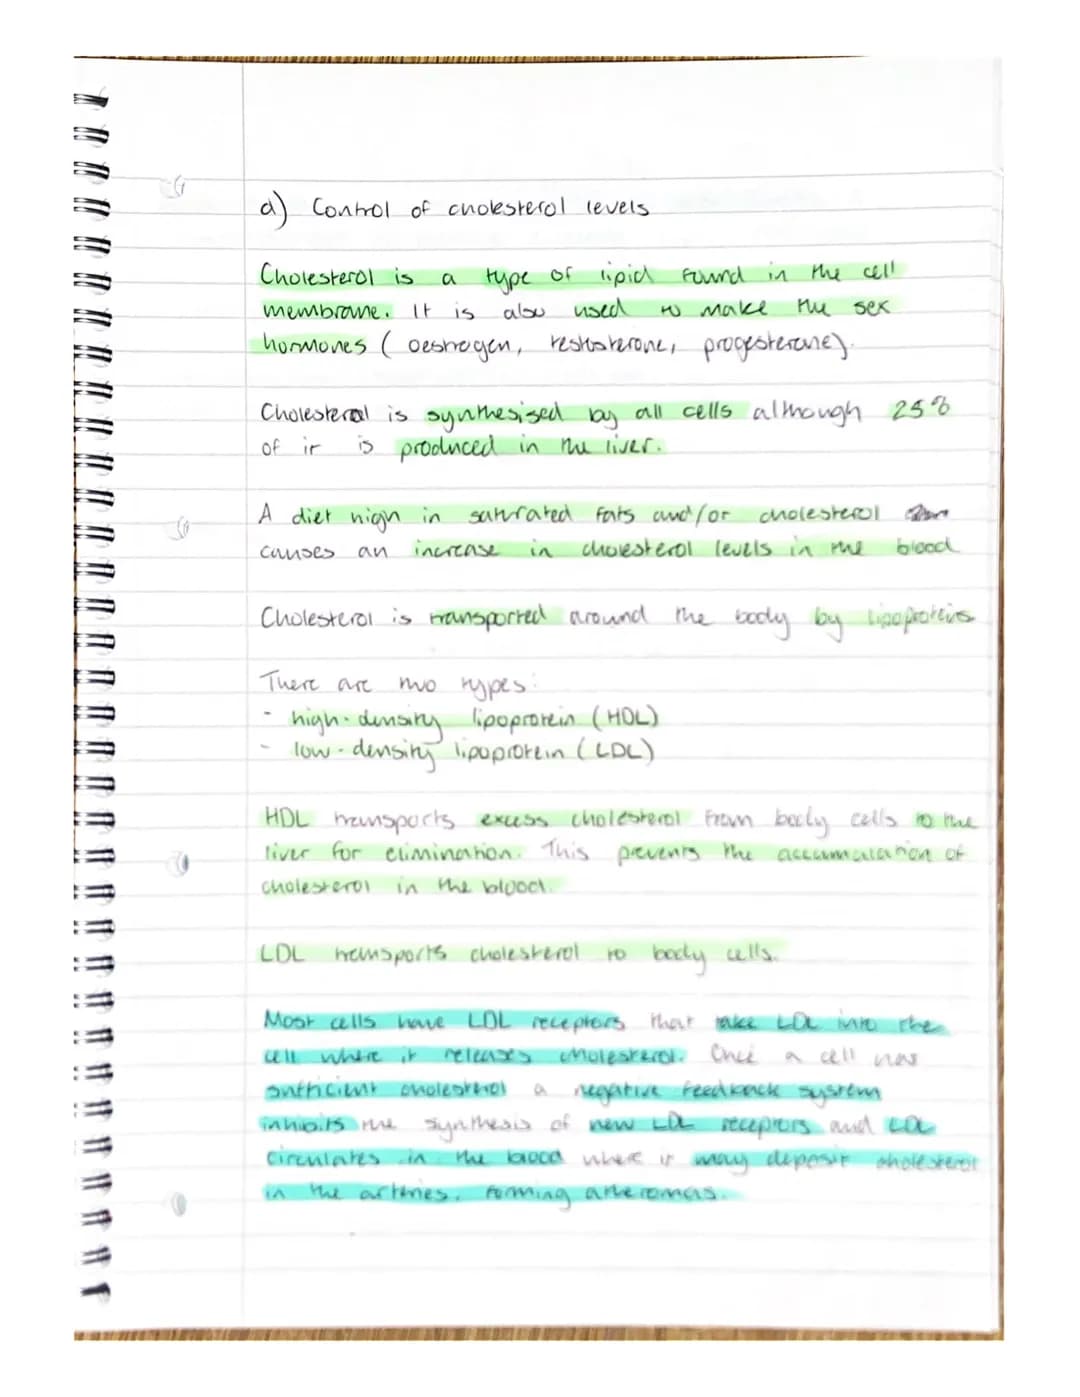 d) Control of cholesterol levels
Cholesterol is a type of lipid found in the cell
membrane. It is also used to make the sex
hormones (oestrogen, testosterone, progesterone).
Cholesterol is synthesised by all cells although 25%
of it is produced in the liver.
A diet high in saturated fats and/or cholesterol
causes an increase in cholesterol levels in the blood
Cholesterol is transported around the body by lipoproteins
There are two types:
- high-density lipoprotein (HDL)
- low-density lipoprotein (LDL)
HDL transports excess cholesterol from body cells to the
liver for elimination. This prevents the accumulation of
cholesterol in the blood.
LDL transports cholesterol to body cells.
Most cells have LDL receptors that take LDL into the
cell where it releases cholesterol. Once a cell has
sufficient cholesterol a negative feedback system
inhibits the synthesis of new LDL receptors and LDL
circulates in the blood where it may deposit cholesterol
in the arteries, forming atheromas.